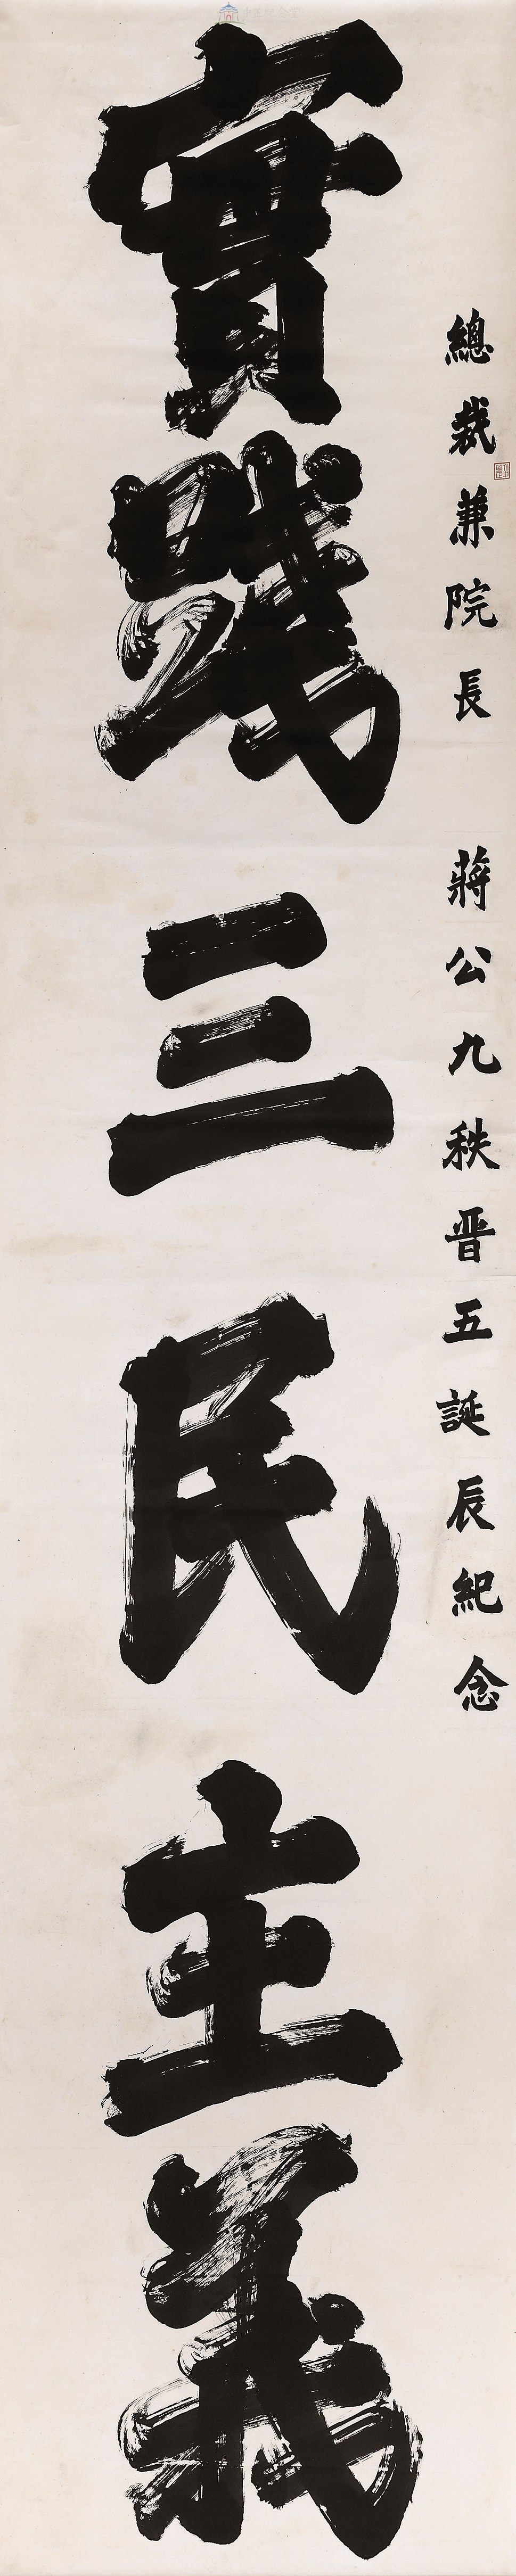 總裁兼院長 蔣公九秩晋五誕辰紀念
實踐三民主義